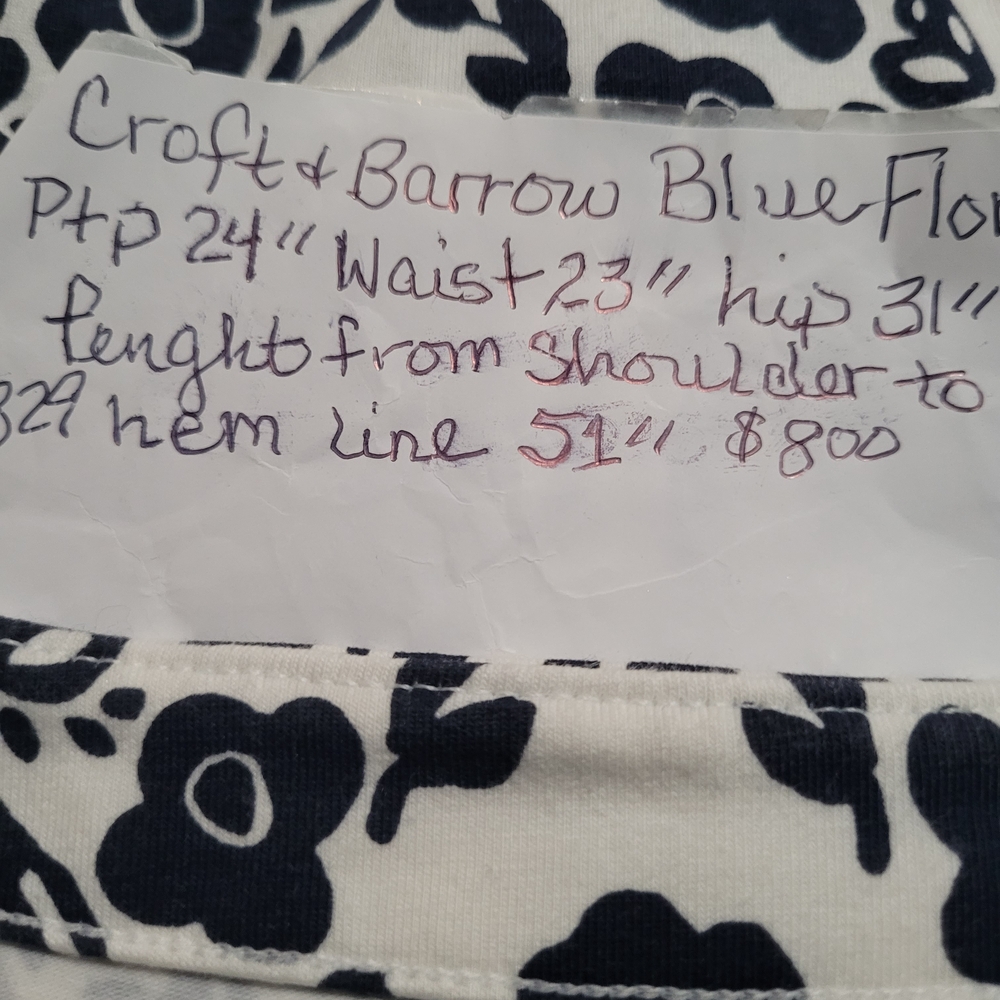 Croft & Barrow Blue Flo
Ptp 24" Waist 23" hip 31"
lenght from Shoulder to
329 hem line 51" $800